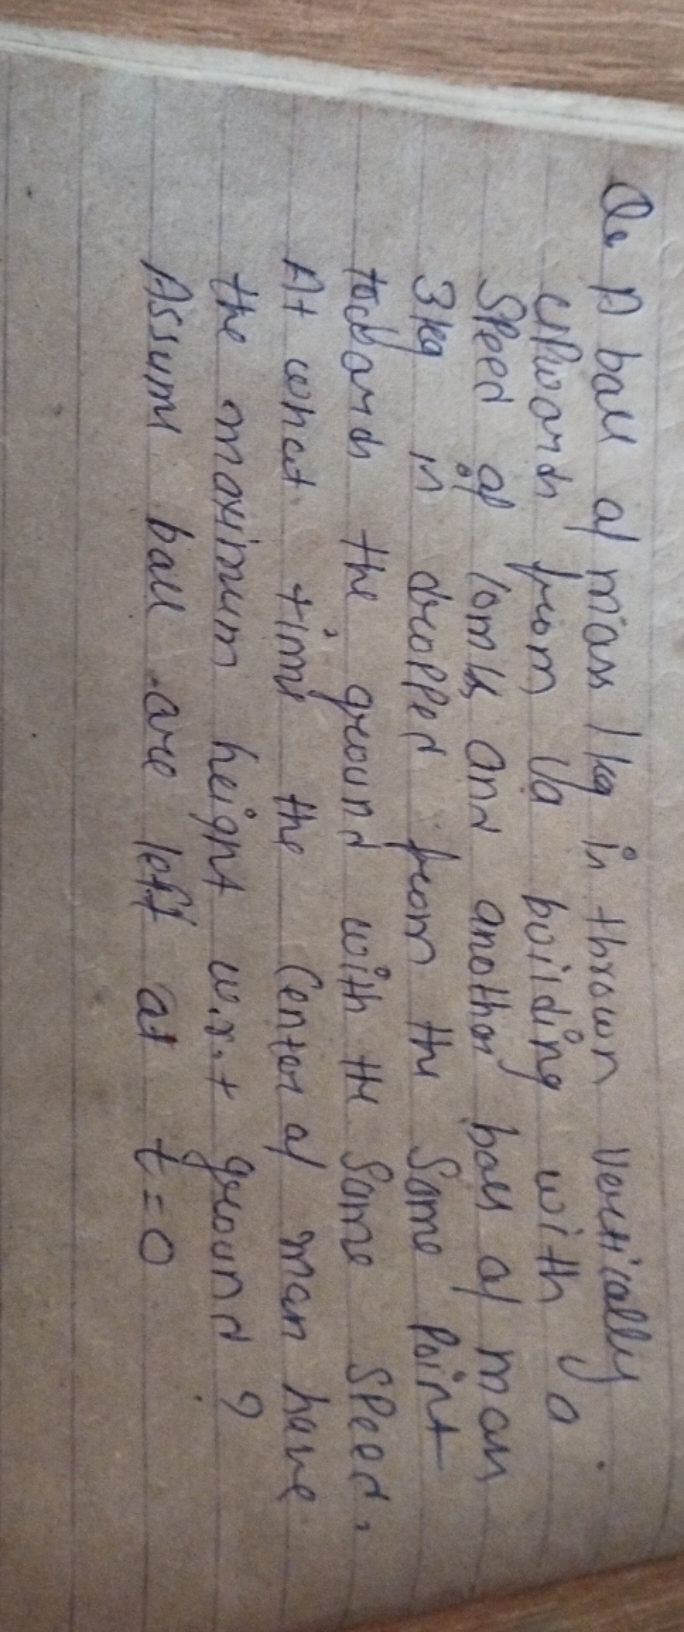 Q. A ball of mass 1 kg is thrown vertically
upwards from a building with a
speed of 10m/s and another ball of mass
3kg is dropped from the same point
towards the ground with the same speed.
At what time the center of mass have
the maximum height w.r.t ground ?
Assume ball are left at t=0